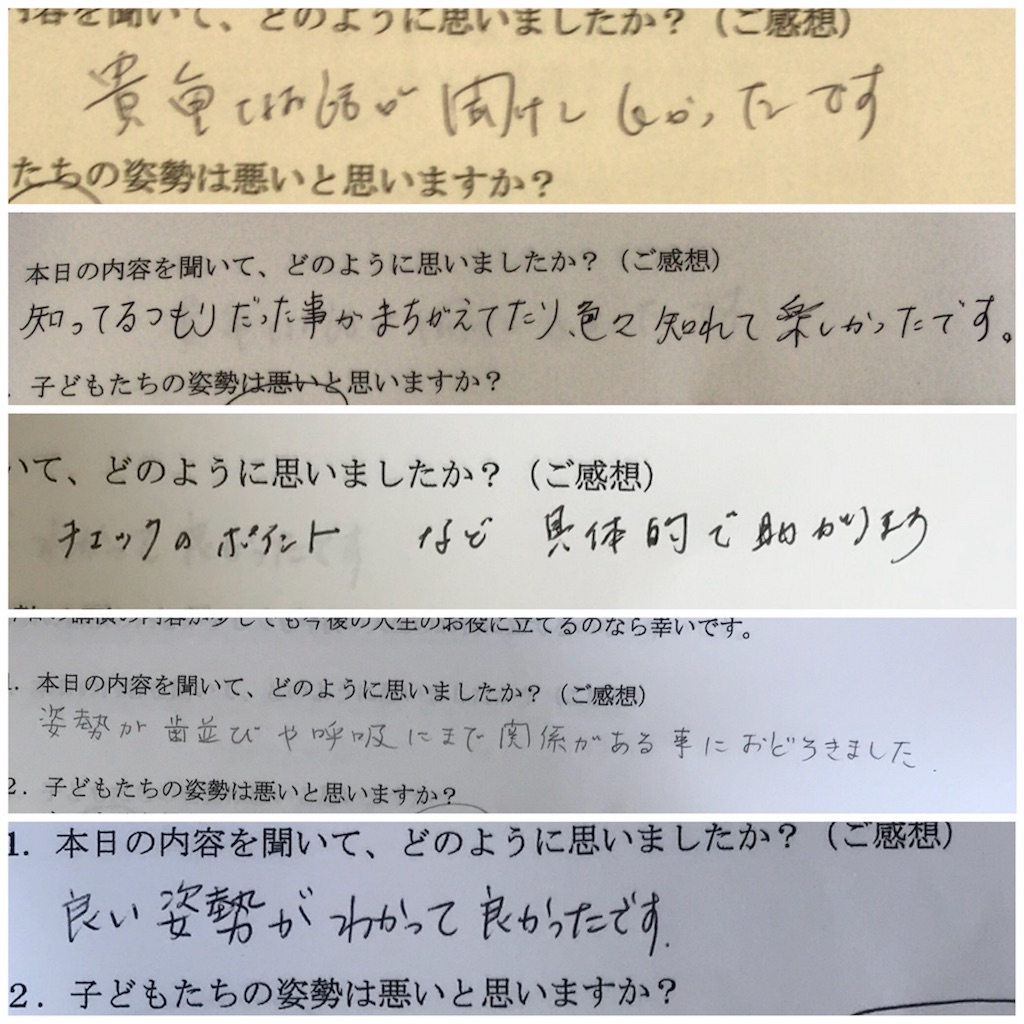 内容を聞いて、どのように思いましたか？（ご感想）
貴重なお話が聞けてよかったです
たちの姿勢は悪いと思いますか？
本日の内容を聞いて、どのように思いましたか？（ご感想）
知ってるつもりだった事がまちがえてたり、色々知れて楽しかったです。
子どもたちの姿勢は悪いと思いますか？
いて、どのように思いましたか？（ご感想）
チェックのポイント など 具体的で助かります
の講演の内容が少しでも今後の人生のお役に立てるのなら幸いです。
1. 本日の内容を聞いて、どのように思いましたか？（ご感想）
姿勢が歯並びや呼吸にまで関係がある事におどろきました
2. 子どもたちの姿勢は悪いと思いますか？
1. 本日の内容を聞いて、どのように思いましたか？（ご感想）
良い姿勢がわかって良かったです.
2. 子どもたちの姿勢は悪いと思いますか？